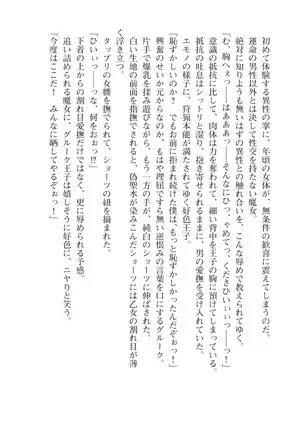 初めて体験する異性の掌に、年頃の女体が、無条件の歓喜に震えてしまうのだ。
運命の男性以外とは決して交を持たない魔女。
絶対に知りようも無いはずの異性との触れ合いを、こんな辱めで教えられてゆく。
「む、胸へぇっ――はああぁっ――そんなにひっ、ゃめてっ、くださひいぃっ――っ！」
意識の抵抗に比して、肉体は力を奪われて、細い背中を王子の胸に預けてしまっている。
抵抗の吐息はシットリと湿り、抱き寄せられるまま、男の愛撫を受け入れていた。
エモノの様子に、狩猟本能が満たされてゆく好色王子。
「恥ずかしいのか？　でもお前に拒まれ続けた僕は、もっと恥ずかしかったんだぞぉっ！」
片手で爆乳を揉み遊びながら、もう一方の手が、純白のショーツに伸ばされた。
白い生地の前面を指撫でされると、偽聖水が染みこんだショーツには乙女の割れ目が薄く浮き立つ。
タップリの女腰を撫でられて、ショーツの紐を摘まれた。
「ひいぃっ――っな、何をおぉっ!?」
下着の上からの割れ目愛撫だけではなく、更に辱められる予感。
追い詰められる魔女に、グルーク王子は嬉しそうに好色で、ニヤリと笑う。
「今度はここだ！　みんなに晒してやるぞぉっ！」